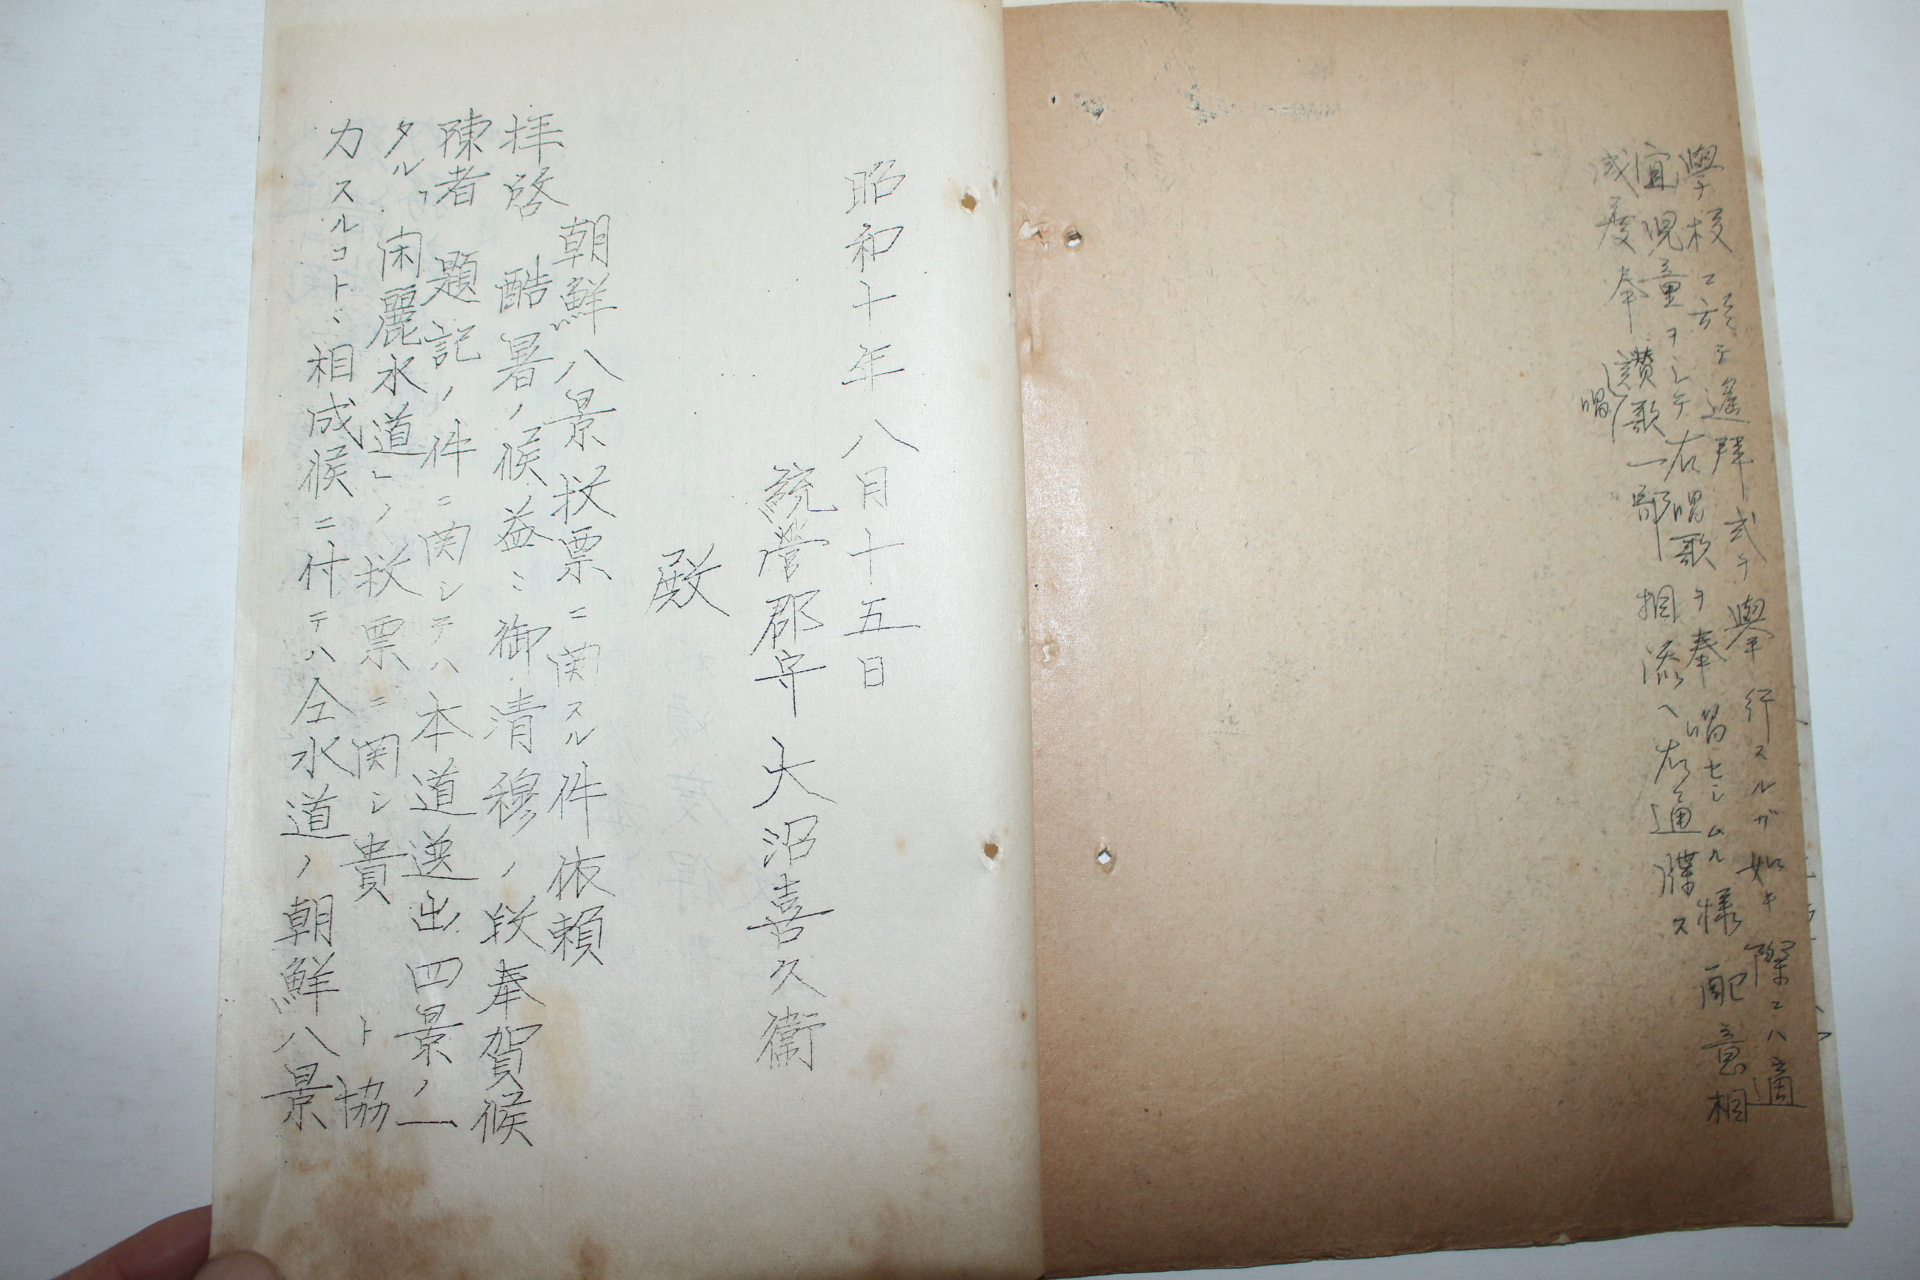 學校ニ於テ遙拜式ヲ擧行スルガ如キ際ニハ適
宜児童ヲシテ右唱歌ヲ奉唱セシムル様配意相
成度奉讃歌一部相添ヘ右通牒ス
唱
昭和十年八月十五日
統營郡守 大沼喜久衞
殿
朝鮮八景投票ニ関スル件依頼
拝啓 酷暑ノ候益ミ御清穆ノ段奉賀候
陳者 題記ノ件ニ関シテハ本道選出四景ノ一
タル「閑麗水道」ノ投票ニ関シ貴 ト協
力スルコトヽ相成候ニ付テハ仝水道ノ朝鮮八景